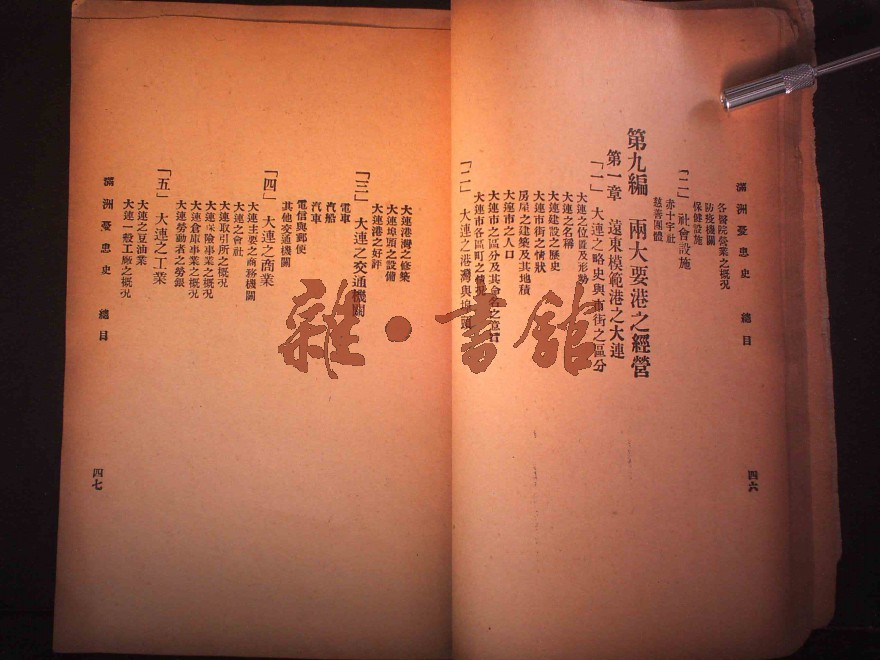 滿洲憂患史 總目
四六
各醫院營業之概況
防疫機關
保健設施
「二」 社會設施
赤十字社
慈善團體
第九編 兩大要港之經營
第一章 遠東模範港之大連
「一」 大連之略史與市街之區分
大連之位置及形勢
大連之名稱
大連建設之歷史
大連市街之情狀
房屋之建築及其地積
大連市之人口
大連市之區分及其命名之意旨
大連市各區町之情況
「二」 大連之港灣與埠頭
大連港灣之修築
大連埠頭之設備
大連港之好評
「三」 大連之交通機關
電車
汽船
汽車
電信與郵便
其他交通機關
「四」 大連之商業
大連主要之商務機關
大連之會社
大連取引所之概況
大連保險事業之概況
大連倉庫事業之概況
大連勞動者之勞銀
「五」 大連之工業
大連之豆油業
大連一般工廠之概況
滿洲憂患史 總目
四七
雜·書館